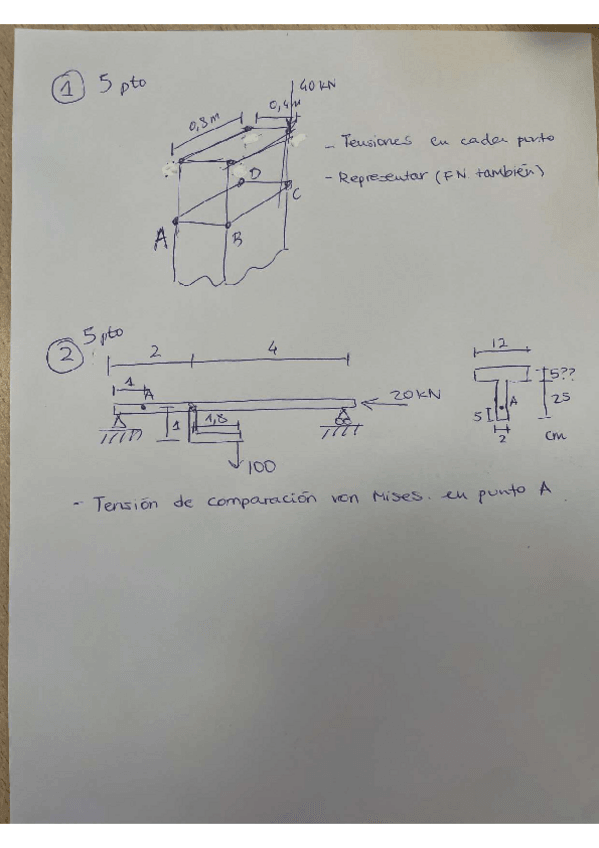 1 5 pto
40 KN
0,8 m
0,4 m
- Tensiones en cada punto
- Representar (FN también)
D
C
A
B
2 5 pto
2 4
1
A
20KN
1
1,8
100
12
5??
A
25
5
2
cm
- Tensión de comparación von Mises. en punto A.